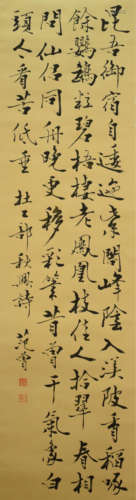 昆吾御宿自逶迤紫閣峰陰入渼陂香稻啄
餘鸚鵡粒碧梧棲老鳳凰枝佳人拾翠春相
問仙侶同舟晚更移彩筆昔曾干氣象白
頭吟望苦低垂 杜工部秋興詩